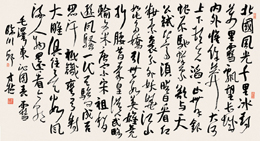 北國風光千里冰封
萬里雪飄望長城
內外惟餘莽莽大河
上下頓失滔滔山舞銀
蛇原馳蠟象欲與天
公試比高須晴日看紅
裝素裹分外妖嬈江山
如此多嬌引無數英雄
競折腰惜秦皇漢武
略輸文采唐宗宋祖稍
遜風騷一代天驕成吉
思汗只識彎弓射
大雕俱往矣數風
流人物還看今朝
毛澤東沁園春雪
臨川